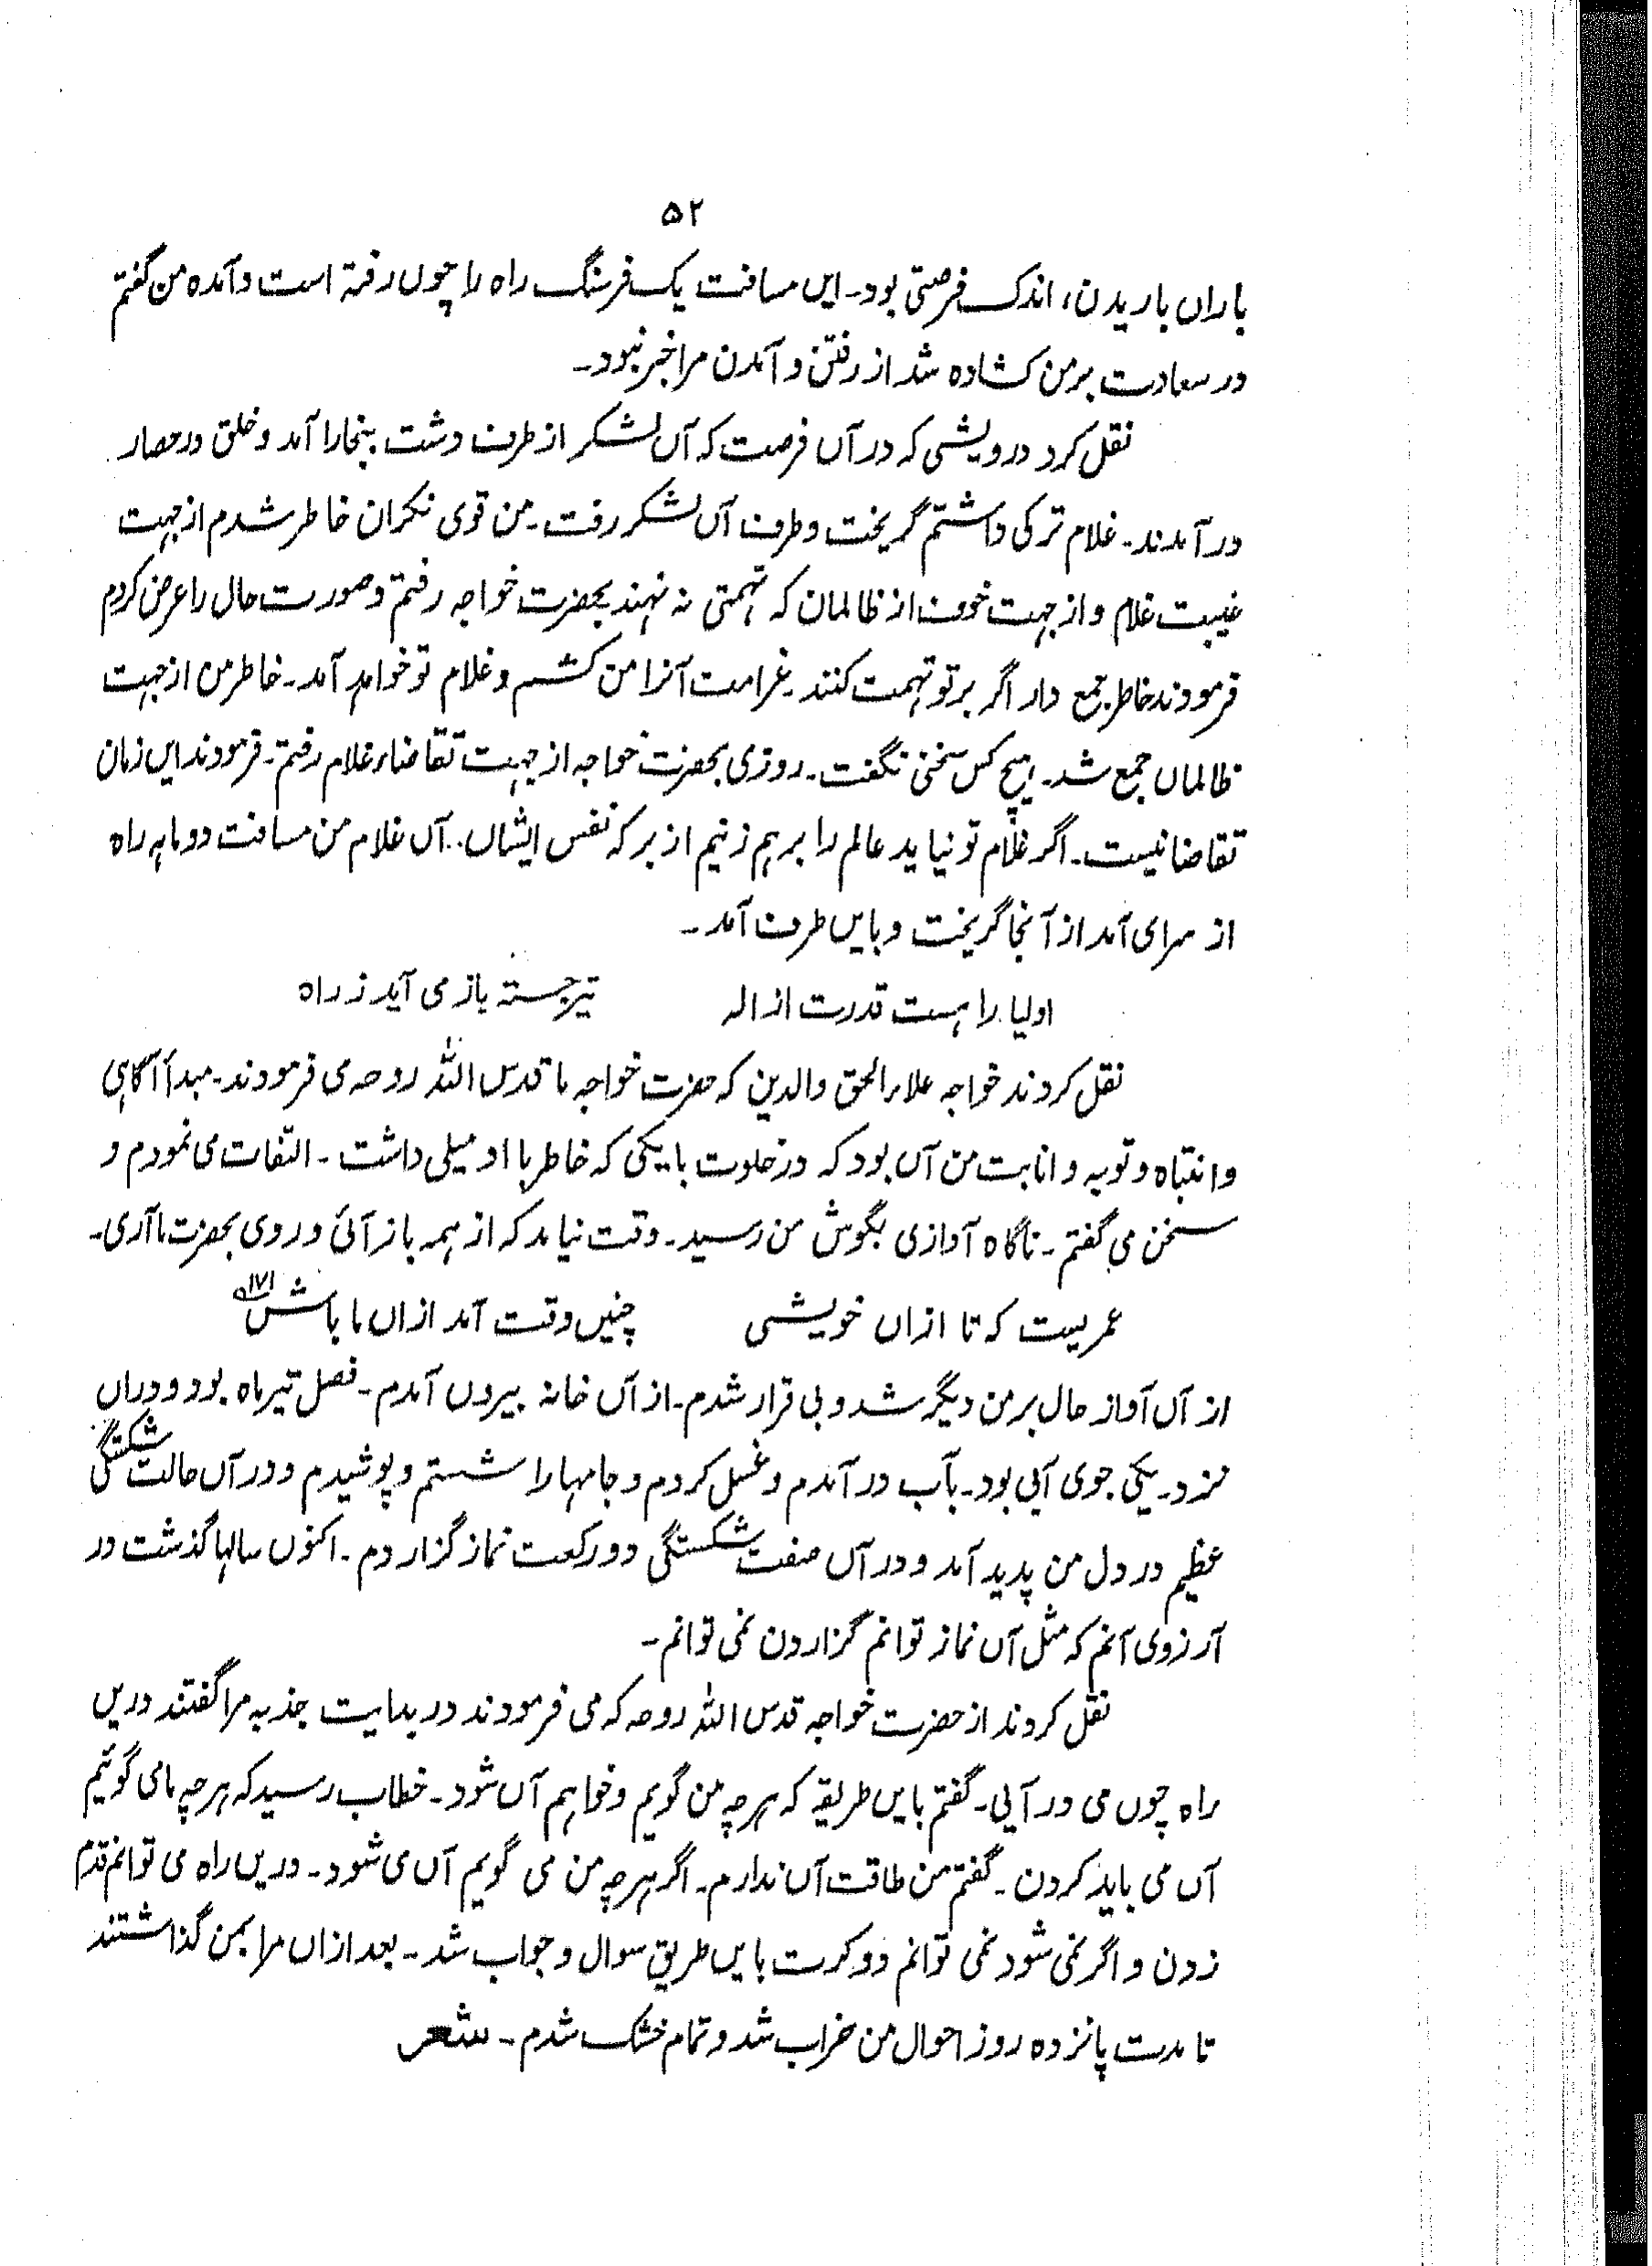 ۵۲
باراں باریدن، اندک فرصتی بود۔ ایں مسافت یک فرسنگ راه را چوں رفتہ است و آمده من گفتم
در سعادت برمن کشاده شد از رفتن و آمدن مرا خبر نبود۔
نقل کرد درویشی کہ در آں فرصت کہ آں لشکر از طرف دشت ببخارا آمد و خلق در حصار
در آمدند۔ غلام ترکی داشتم گریخت و طرف آں لشکر رفت۔ من قوی نگران خاطر شدم از جہت
غیبت غلام و از جہت خوف از ظالمان کہ تہمتی نہ نہند بحضرت خواجہ رفتم و صورت حال را عرض کردم
فرمودند خاطر جمع دار اگر برتو تہمت کنند۔ غرامت آنرا من کشم و غلام تو خواہد آمد۔ خاطر من از جہت
ظالماں جمع شد۔ ہیچ کس سخنی نگفت۔ روزی بحضرت خواجہ از جہت تقاضاء غلام رفتم۔ فرمودند ایں زمان
تقاضا نیست۔ اگر غلام تو نیاید عالم را برہم زنیم از برکہ نفس ایشاں۔ آں غلام من مسافت دو ماہہ راه
از سرای آمد از آنجا گریخت و بایں طرف آمد۔
اولیا را ہست قدرت از الہ تیر جستہ باز می آید ز راه
نقل کردند خواجہ علاءالحق والدین کہ حضرت خواجہ ما قدس اللہ روحہ می فرمودند۔ مبدأ آگاہی
و انتباه و توبہ و انابت من آں بود کہ در خلوت با یکی کہ خاطر با او میلی داشت۔ التفات می نمودم و
سخن می گفتم۔ ناگاه آوازی بگوش من رسید۔ وقت نیامد کہ از ہمہ باز آئی و روی بحضرت ما آری۔
عمریست کہ تا ازاں خویشی چنیں وقت آمد ازاں ما باش ۱۷۱ھ
از آں آواز حال برمن دیگر شد و بی قرار شدم۔ از آں خانہ بیروں آمدم۔ فصل تیرماه بود و دراں
نزدیکی جوی آبی بود۔ بآب در آمدم و غسل کردم و جامہا را شستم و پوشیدم و در آں حالت شکستگی
عظیم در دل من پدید آمد و در آں صفت شکستگی دو رکعت نماز گزاردم۔ اکنوں سالہا گذشت در
آرزوی آنم کہ مثل آں نماز توانم گزاردن نمی توانم۔
نقل کردند از حضرت خواجہ قدس اللہ روحہ کہ می فرمودند در بدایت جذبہ مرا گفتند دریں
راه چوں می در آیی۔ گفتم بایں طریقہ کہ ہرچہ من گویم و خواہم آں شود۔ خطاب رسید کہ ہرچہ ما می گوئیم
آں می باید کردن۔ گفتم من طاقت آں ندارم۔ اگر ہرچہ من می گویم آں می شود۔ دریں راه می توانم قدم
زدن و اگر نمی شود نمی توانم دو کرت بایں طریق سوال و جواب شد۔ بعد ازاں مرا بمن گذاشتند
تا مدت پانزده روز احوال من خراب شد و تمام خشک شدم۔ شعر